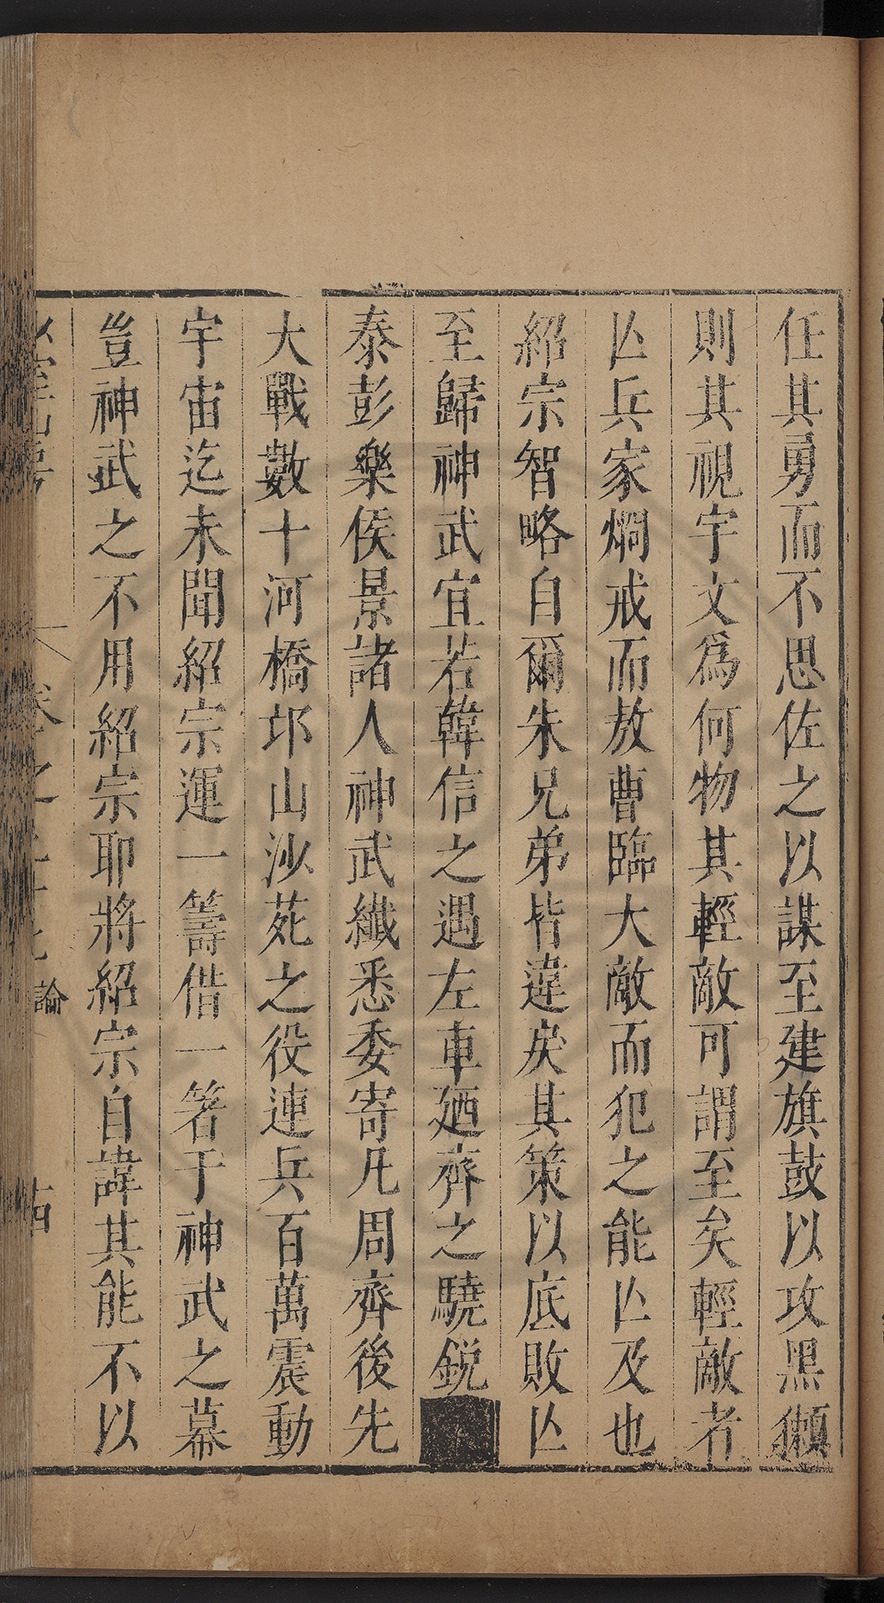 任其勇而不思佐之以謀至建旗鼓以攻黑獺
則其視宇文爲何物其輕敵可謂至矣輕敵者
亾兵家烱戒而敖曹臨大敵而犯之能亾及也
紹宗智略自爾朱兄弟皆違戾其策以底敗亾
至歸神武宜若韓信之遇左車廼齊之驍鋭
泰彭樂侯景諸人神武纖悉委寄凡周齊後先
大戰數十河橋邙山沙苑之役連兵百萬震動
宇宙迄未聞紹宗運一籌借一箸于神武之幕
豈神武之不用紹宗耶將紹宗自諱其能不以
卷之 論